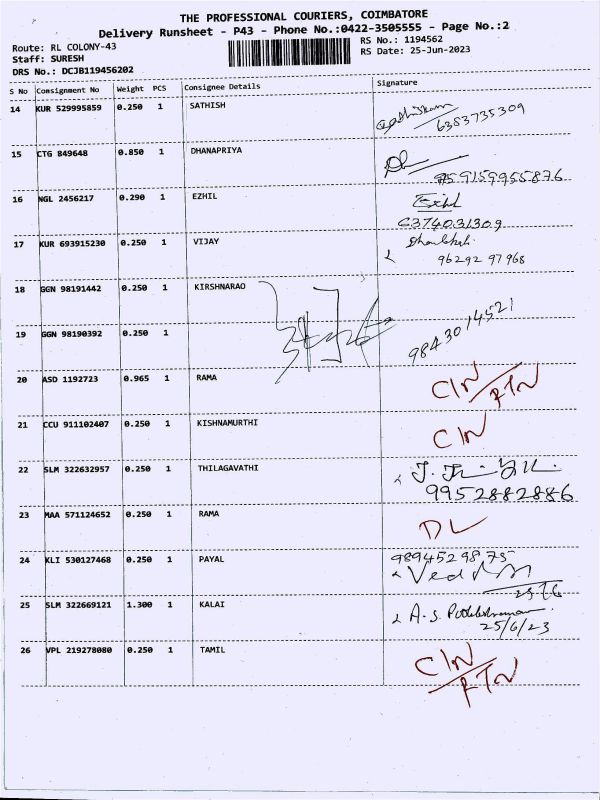 THE PROFESSIONAL COURIERS, COIMBATORE
Delivery Runsheet - P43 - Phone No.:0422-3505555 - Page No.:2
Route: RL COLONY-43 RS No.: 1194562
Staff: SURESH RS Date: 25-Jun-2023
DRS No.: DCJB119456202
S No Consignment No Weight PCS Consignee Details Signature
14 KUR 529995859 0.250 1 SATHISH
6383735309
15 CTG 849648 0.850 1 DHANAPRIYA
16 NGL 2456217 0.290 1 EZHIL Ezhil
6374031309
17 KUR 693915230 0.250 1 VIJAY
96292 97968
18 GGN 98191442 0.250 1 KIRSHNARAO
19 GGN 98190392 0.250 1 9843014521
20 ASD 1192723 0.965 1 RAMA C/N
RTN
21 CCU 911102407 0.250 1 KISHNAMURTHI C/N
22 SLM 322632957 0.250 1 THILAGAVATHI
9952882886
23 MAA 571124652 0.250 1 RAMA DL
24 KLI 530127468 0.250 1 PAYAL 9894529875
25/6
25 SLM 322669121 1.300 1 KALAI A.S.
25/6/23
26 VPL 219278080 0.250 1 TAMIL C/N
RTN